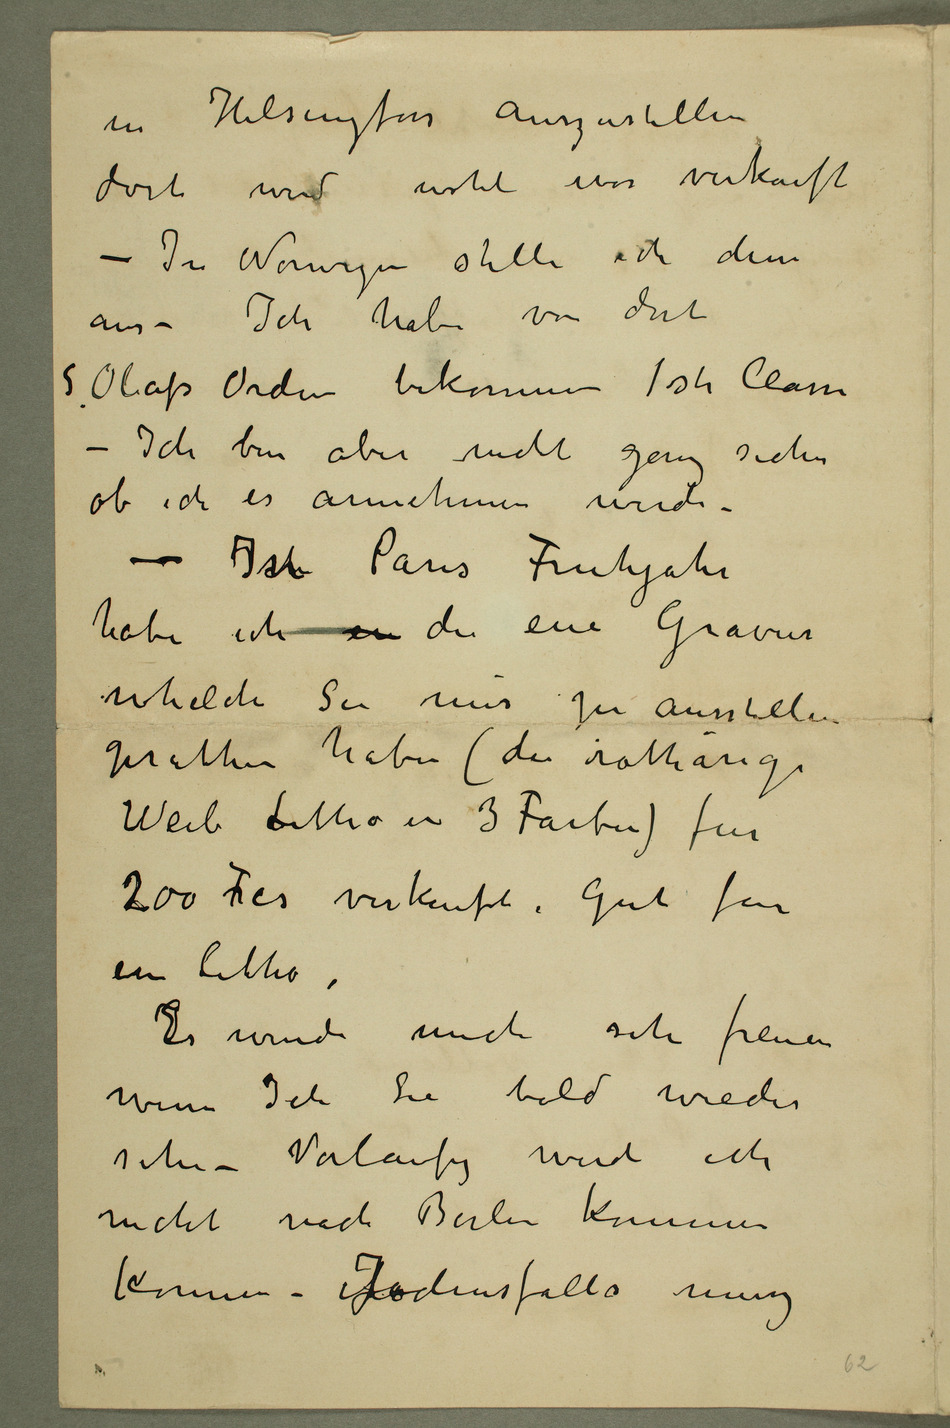 in Helsingfors auszustellen
dort wird wohl was verkauft
– In Norwegen stelle ich denn
aus – Ich habe von dort
S. Olafs Orden bekommen 1ste Classe
– Ich bin aber nicht ganz sicher
ob ich es annehmen werde –
– Ist Paris Fruhjahr
habe ich die eine Gravur
whelche Sie mir zu ausstellen
gerathen haben (die rothärige
Weib Litho in 3 Farben) für
200 Fcs verkauft. Gut für
ein Litho,
Es wurde mich sehr freuen
wenn Ich Sie bald wieder
sehe – Vorlaufig werde ich
nicht nach Berlin kommen
konnen – Jedensfalls muss
62